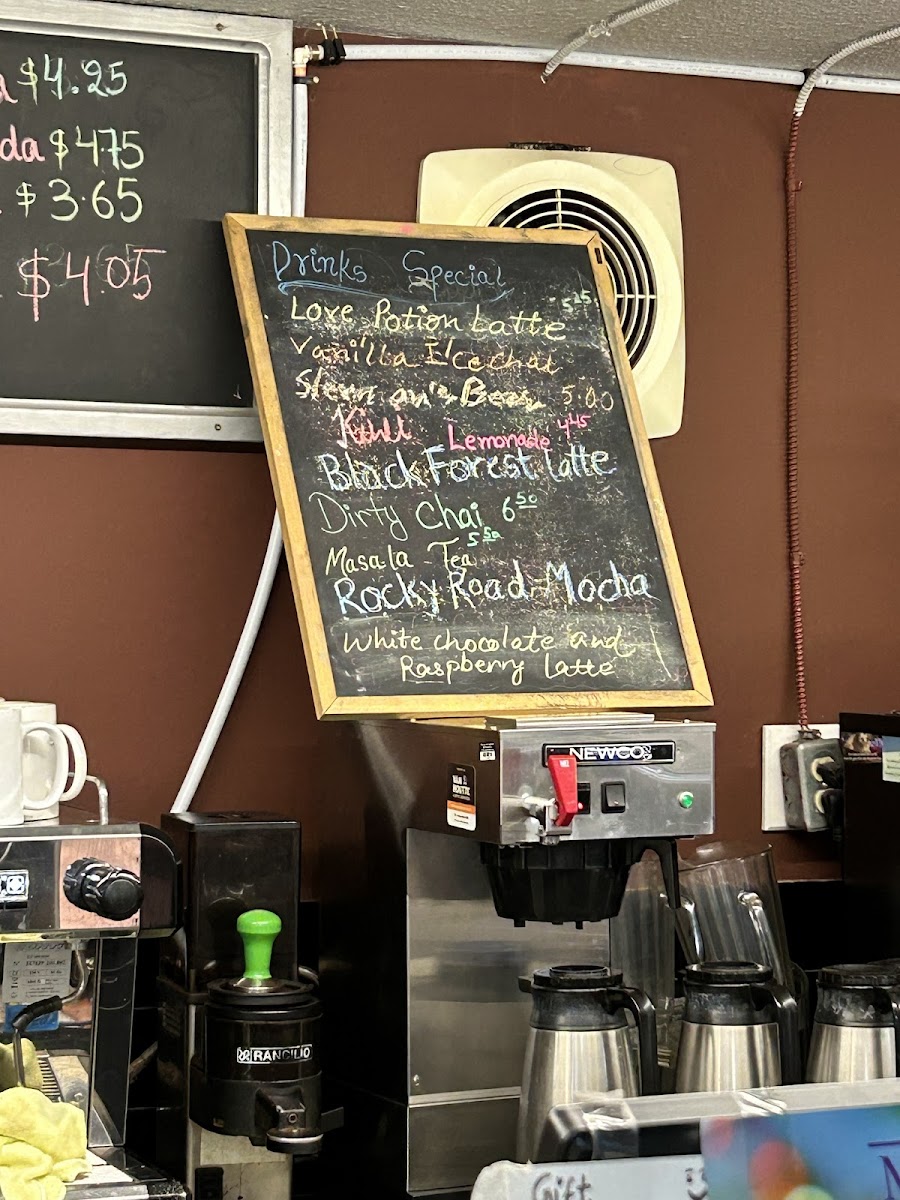 $4.25
da $4.75
$3.65
$4.05
Drinks Special
Love Potion Latte 5.25
Vanilla Ice chai
Sleeman's Beer 5.00
Kiwi Lemonade 4.45
Black Forest latte
Dirty Chai 6.50
Masala Tea 5.50
Rocky Road Mocha
White chocolate and
Raspberry latte
NEWCO
RANCILIO
Gift